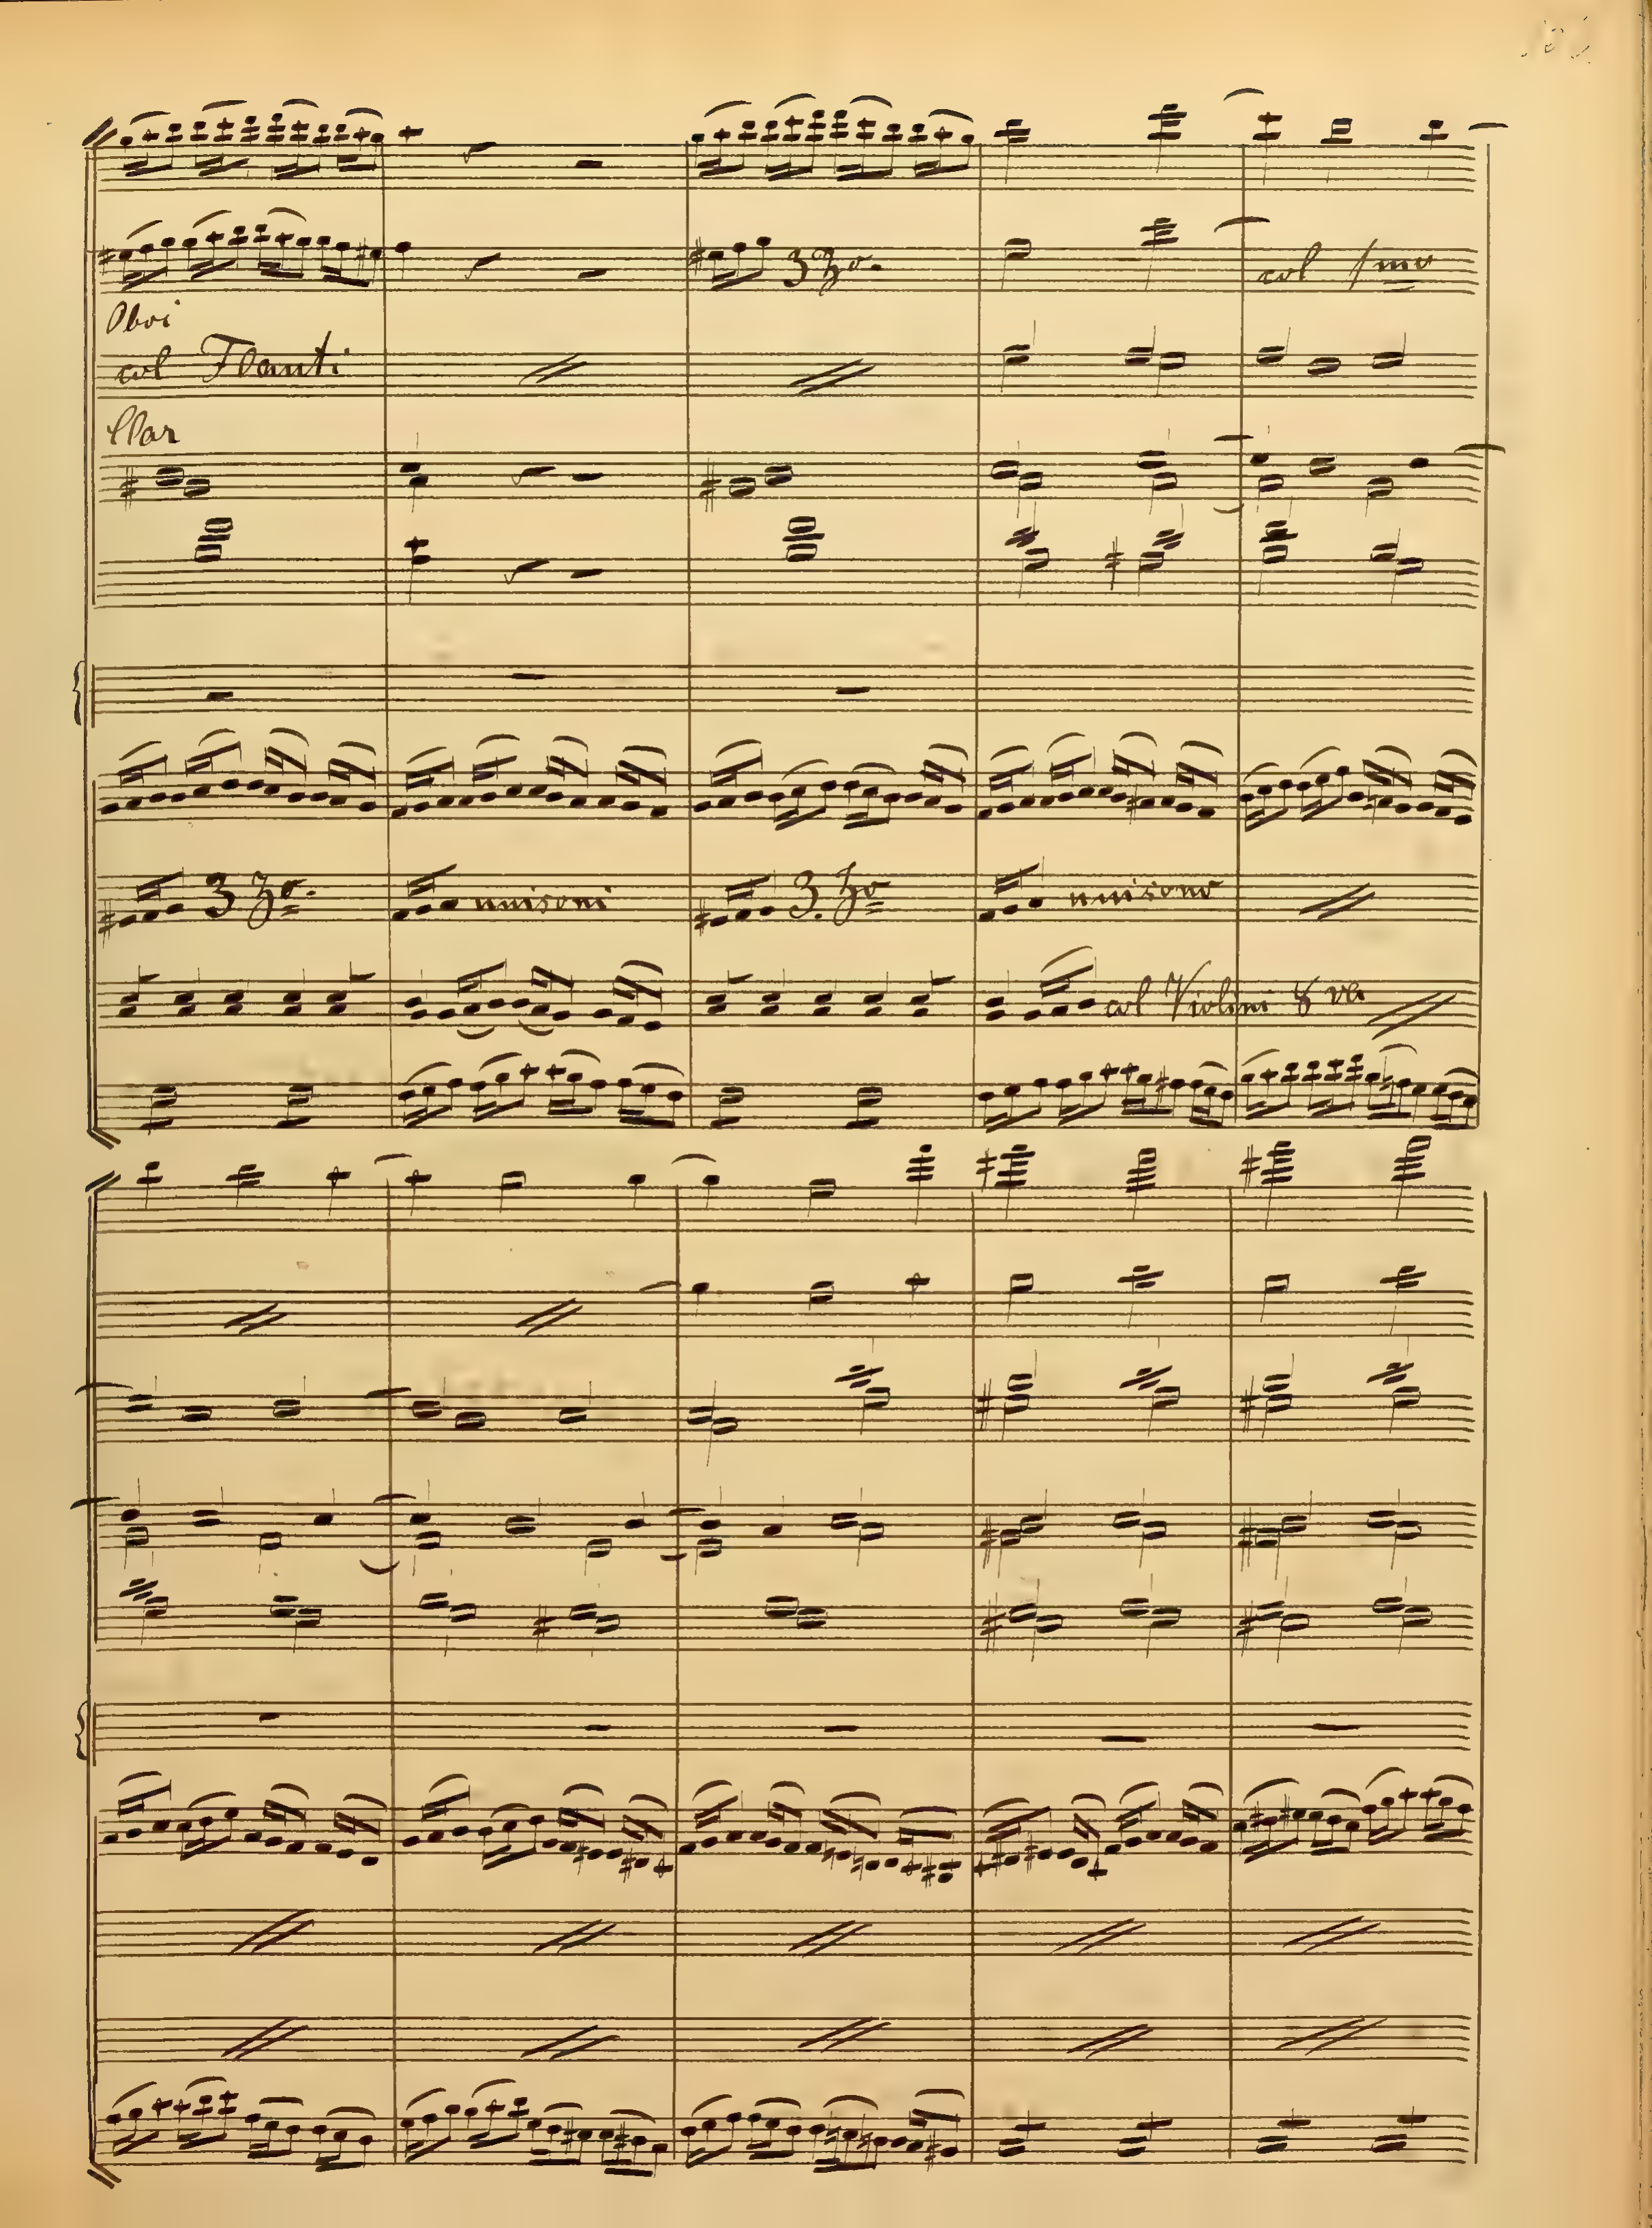 3 Zo.
col 1mo
Oboi
col Flauti
Clar
3 Zo. unisoni 3. Zo unisono
col Violini 8va